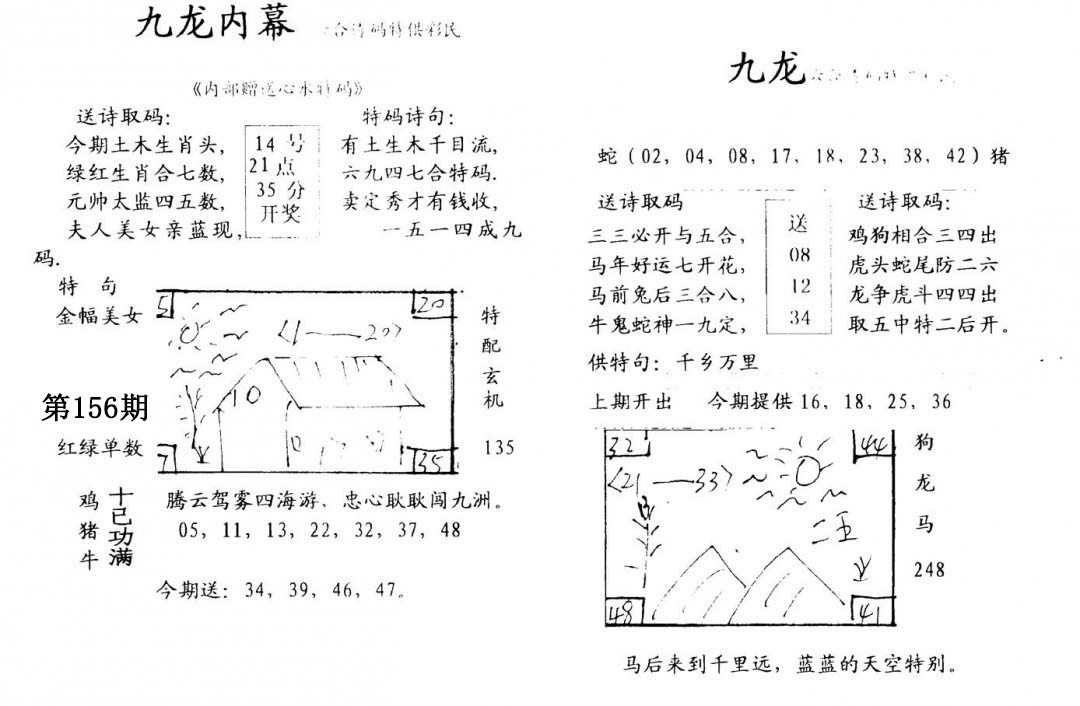 九龙内幕 合诗码特供彩民
《内部赠送心水特码》
送诗取码：
今期土木生肖头，
绿红生肖合七数，
元帅太监四五数，
夫人美女亲蓝现，
码.
14 号
21点
35 分
开奖
特码诗句：
有土生木千目流，
六九四七合特码.
卖定秀才有钱收，
一五一四成九
特 句
金幅美女
第156期
红绿单数
5
20
〈1——20〉
10
7
35
特
配
玄
机
135
鸡
猪
牛
十已功满
腾云驾雾四海游，忠心耿耿闯九洲。
05，11，13，22，32，37，48
今期送：34，39，46，47。
九龙
蛇（02，04，08，17，18，23，38，42）猪
送诗取码
三三必开与五合，
马年好运七开花，
马前兔后三合八，
牛鬼蛇神一九定，
送
08
12
34
送诗取码：
鸡狗相合三四出
虎头蛇尾防二六
龙争虎斗四四出
取五中特二后开。
供特句：千乡万里
上期开出 今期提供16，18，25，36
32
44
〈21——33〉
48
41
狗
龙
马
248
马后来到千里远，蓝蓝的天空特别。